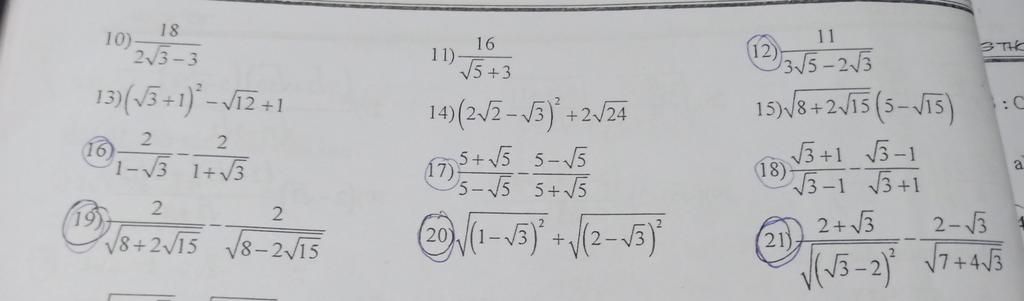 10) \frac{18}{2\sqrt{3}-3} 11) \frac{16}{\sqrt{5}+3} 12) \frac{11}{3\sqrt{5}-2\sqrt{3}}
13) (\sqrt{3}+1)^2-\sqrt{12}+1 14) (2\sqrt{2}-\sqrt{3})^2+2\sqrt{24} 15) \sqrt{8+2\sqrt{15}}(5-\sqrt{15})
16) \frac{2}{1-\sqrt{3}}-\frac{2}{1+\sqrt{3}} 17) \frac{5+\sqrt{5}}{5-\sqrt{5}}-\frac{5-\sqrt{5}}{5+\sqrt{5}} 18) \frac{\sqrt{3}+1}{\sqrt{3}-1}-\frac{\sqrt{3}-1}{\sqrt{3}+1}
19) \frac{2}{\sqrt{8+2\sqrt{15}}}-\frac{2}{\sqrt{8-2\sqrt{15}}} 20) \sqrt{(1-\sqrt{3})^2}+\sqrt{(2-\sqrt{3})^2} 21) \frac{2+\sqrt{3}}{\sqrt{(\sqrt{3}-2)^2}}-\frac{2-\sqrt{3}}{\sqrt{7+4\sqrt{3}}}